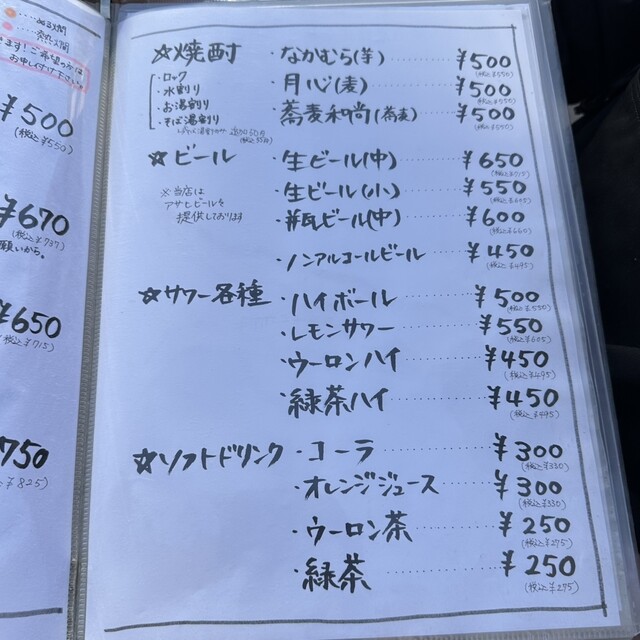 ¥500
(税込¥550)
¥670
(税込¥737)
願いから。
¥650
(税込¥715)
750
込¥825)
☆焼酎
ロック
水割り
お湯割り
そば湯割り
・なかむら(芋) ¥500
(税込¥550)
・月心(麦) ¥500
(税込¥550)
・蕎麦和尚(蕎麦) ¥500
(税込¥550)
☆ビール
※当店は
アサヒビールを
提供しております
・生ビール(中) ¥650
(税込¥715)
・生ビール(小) ¥550
(税込¥605)
・瓶ビール(中) ¥600
(税込¥660)
・ノンアルコールビール ¥450
(税込¥495)
☆サワー各種
・ハイボール ¥500
(税込¥550)
・レモンサワー ¥550
(税込¥605)
・ウーロンハイ ¥450
(税込¥495)
・緑茶ハイ ¥450
(税込¥495)
☆ソフトドリンク
・コーラ ¥300
(税込¥330)
・オレンジジュース ¥300
(税込¥330)
・ウーロン茶 ¥250
(税込¥275)
・緑茶 ¥250
(税込¥275)